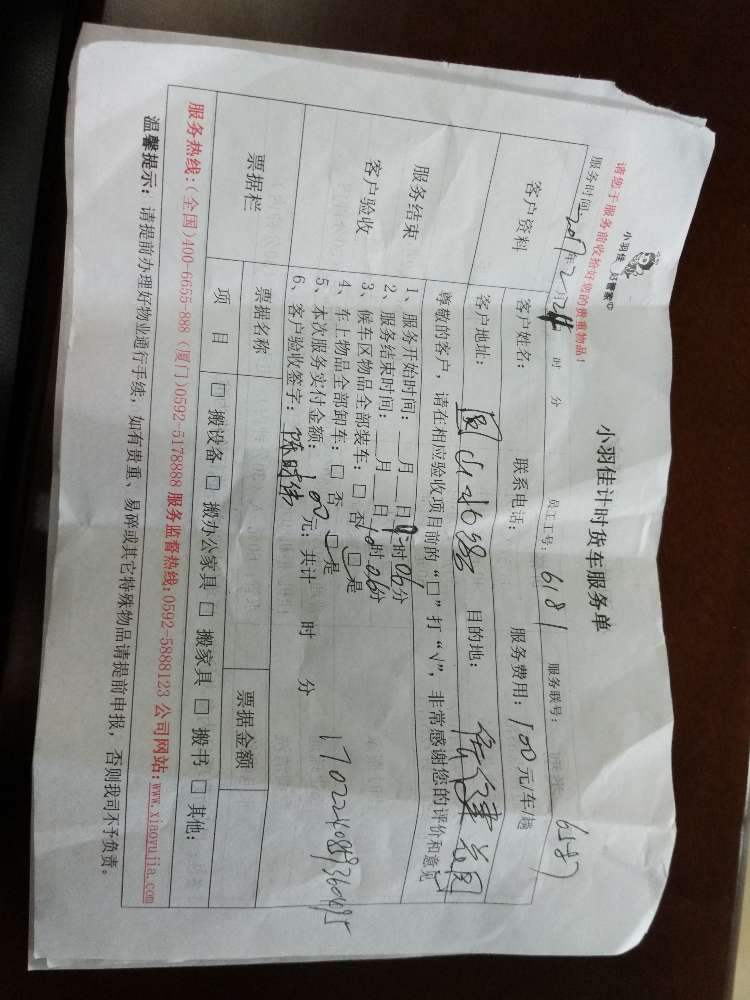 小羽佳 好管家
小羽佳计时货车服务单
请您于服务前收拾好您的贵重物品！
服务时间: 年2月 时 分 员工工号: 6181 服务联号: 6587
客户资料 客户姓名: 联系电话: 服务费用: 100元/车/趟
客户地址: 目的地:
尊敬的客户，请在相应验收项目前的“□”打“√”，非常感谢您的评价和意见
服务结束
客户验收
1、服务开始时间: __月__日9时06分
2、服务结束时间: __月__日10时06分
3、候车区物品全部装车: □ 否 □ 是
4、车上物品全部卸车: □ 否 □ 是
5、本次服务实付金额: 100元; 共计 时 分
6、客户验收签字:
票据栏 票据名称 票据金额
项 目 □ 搬设备 □ 搬办公家具 □ 搬家具 □ 搬书 □ 其他:
服务热线:(全国)400-6655-888 (厦门)0592-5178888 服务监督热线:0592-5888123 公司网站:www.xiaoyujia.com
温馨提示: 请提前办理好物业通行手续，如有贵重、易碎或其它特殊物品请提前申报，否则我司不予负责。